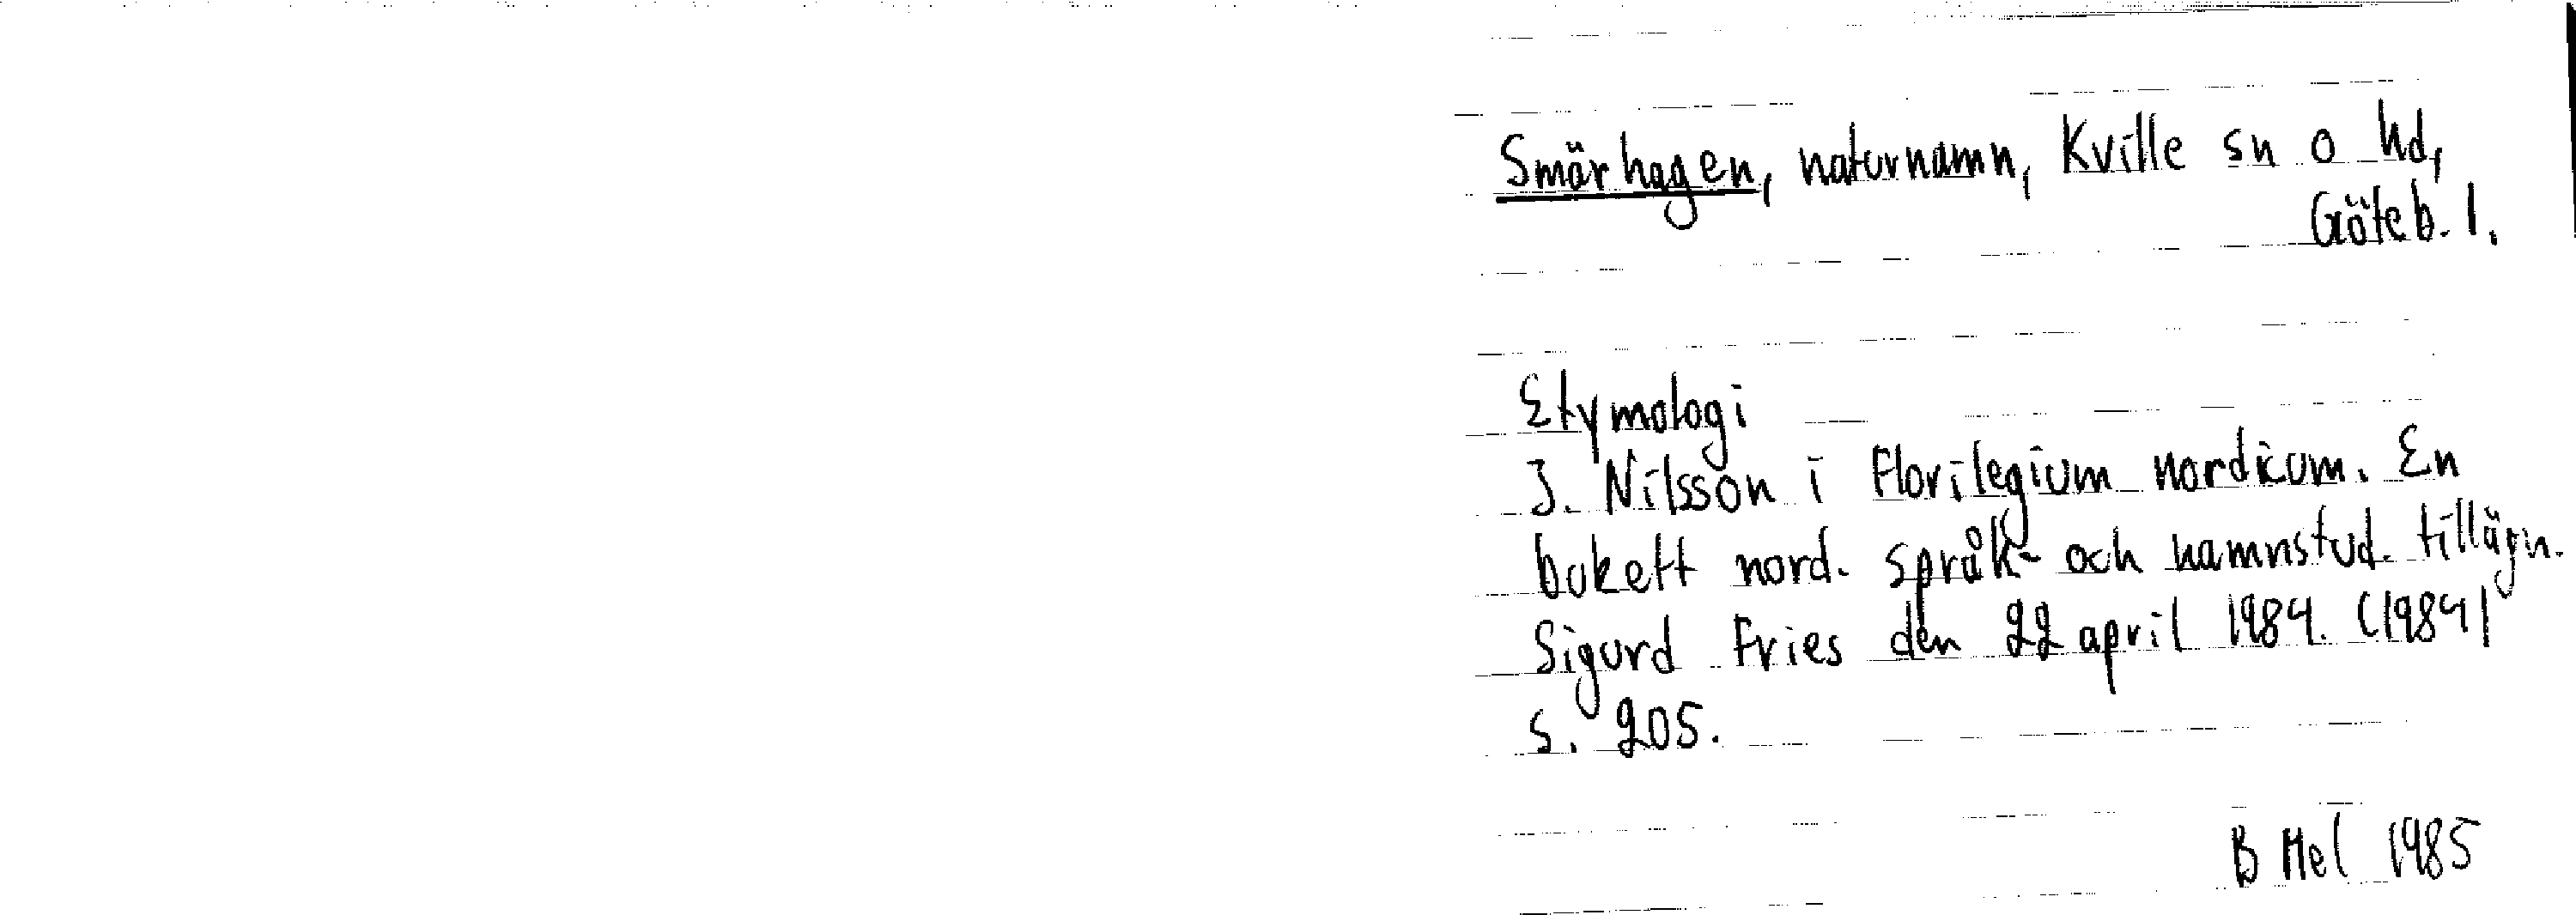 Smärhagen, naturnamn, Kville sn o hd,
Göteb. l.
Etymologi
J. Nilsson i Florilegium nordicum. En
bukett nord. språk- och namnstud. tillägn.
Sigurd Fries den 22 april 1984. (1984)
s. 205.
B Mel 1985